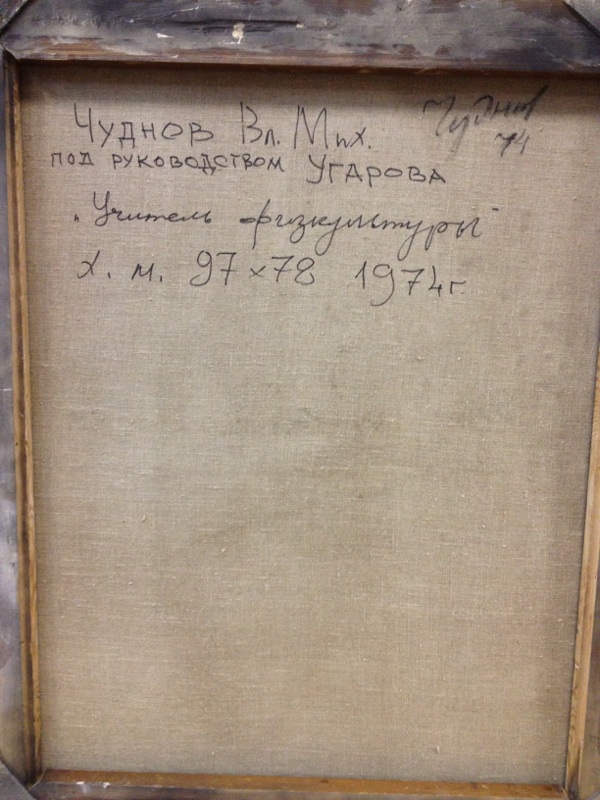 Чуднов Вл. Мих.
Чуднов
74
под руководством Угарова
„Учитель физкультуры"
х. м. 97×78 1974г.